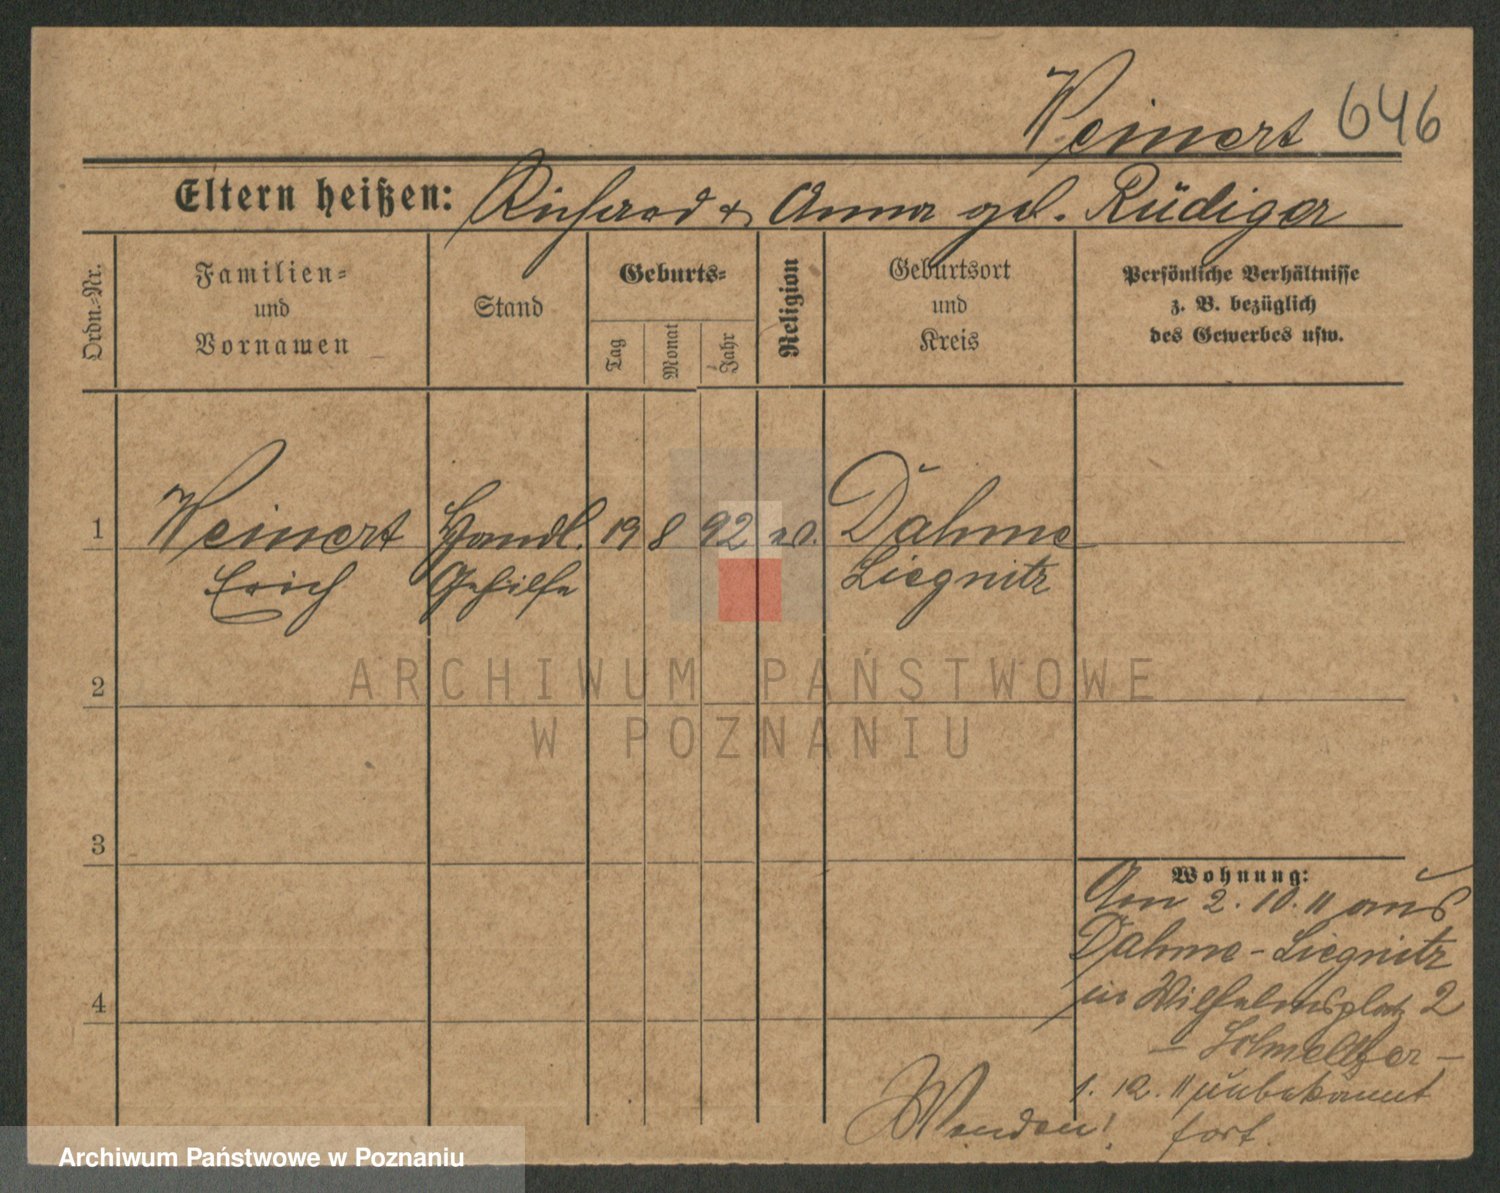 Weinert 646
Eltern heißen: Richard & Anna geb. Rüdiger
Ordn.-Nr.
Familien-
und
Vornamen
Stand
Geburts-
Tag
Monat
Jahr
Religion
Geburtsort
und
Kreis
Persönliche Verhältnisse
z. B. bezüglich
des Gewerbes usw.
1 Weinert Handl. 19 8 92 ev. Dahme
Erich Gehilfe Liegnitz
2
3
4
Wohnung:
Am 2. 10. 11 aus
Dahme - Liegnitz
in Wilhelmsplatz 2
- Schmeltzer -
1. 12. 11 unbekannt
fort.
Wenden!
ARCHIWUM PAŃSTWOWE
W POZNANIU
Archiwum Państwowe w Poznaniu